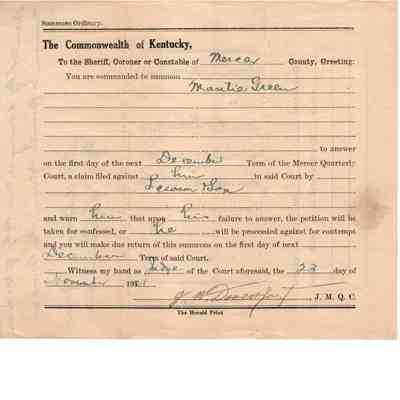 Summons Ordinary.
The Commonwealth of Kentucky,
To the Sheriff, Coroner or Constable of Mercer County, Greeting:
You are commanded to summon
Mantie Green
to answer
on the first day of the next December Term of the Mercer Quarterly
Court, a claim filed against him in said Court by
& Son
and warn him that upon his failure to answer, the petition will be
taken for confessed, or he will be proceeded against for contempt
and you will make due return of this summons on the first day of next
December Term of said Court.
Witness my hand as Judge of the Court aforesaid, the 22 day of
November 1921
J. W. Davenport, J. M. Q. C.
The Herald Print